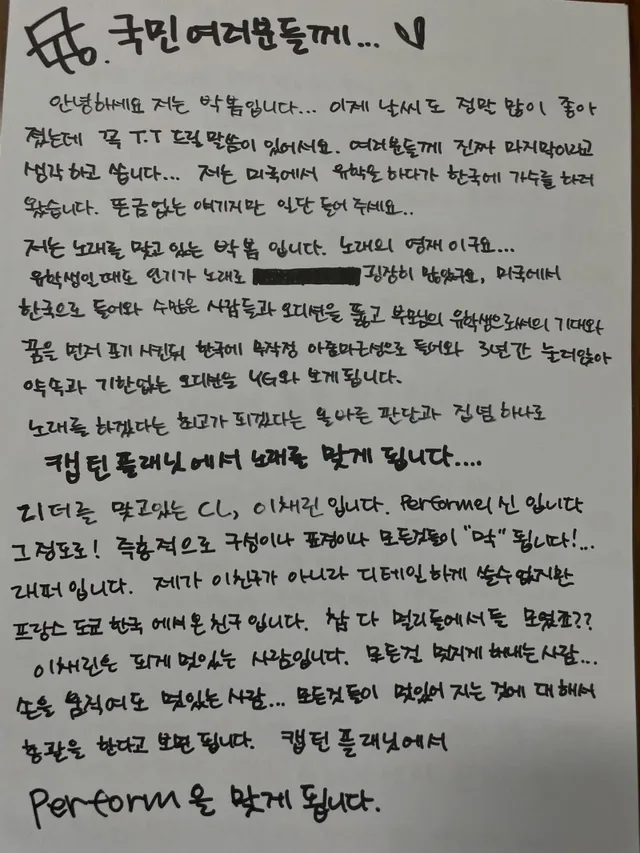 국민여러분들께...
안녕하세요 저는 박봄입니다... 이제 날씨도 정말 많이 좋아
졌는데 꼭 T.T 드릴말씀이 있어서요. 여러분들께 진짜 마지막이라고
생각하고 씁니다... 저는 미국에서 유학을 하다가 한국에 가수를 하러
왔습니다. 뜬금없는 얘기지만 일단 들어 주세요..
저는 노래를 맞고 있는 박봄 입니다. 노래의 영재이구요...
유학생일때도 인기가 노래로 굉장히 많았구요, 미국에서
한국으로 들어와 수많은 사람들과 오디션을 뚫고 부모님의 유학생으로써의 기대와
꿈을 먼저 포기 시킨뒤 한국에 무작정 아줌마근성으로 들어와 3년간 눌러앉아
약속과 기한없는 오디션을 YG와 보게됩니다.
노래를 하겠다는 최고가 되겠다는 올바른 판단과 집념 하나로
캡틴플래닛에서 노래를 맞게 됩니다....
리더를 맞고있는 CL, 이채린입니다. Perform의 신 입니다
그정도로! 즉흥적으로 구성이나 표정이나 모든것들이 "막" 됩니다!...
래퍼입니다. 제가 이친구가 아니라 디테일하게 쓸수없지만
프랑스 도쿄 한국 에서온친구입니다. 참 다 멀리들에서들 모였죠??
이채린은 되게 멋있는 사람입니다. 모든걸 멋지게 해내는사람...
손을 움직여도 멋있는 사람... 모든것들이 멋있어 지는 것에 대해서
총괄을 한다고 보면 됩니다. 캡틴플래닛에서
Perform을 맞게 됩니다.